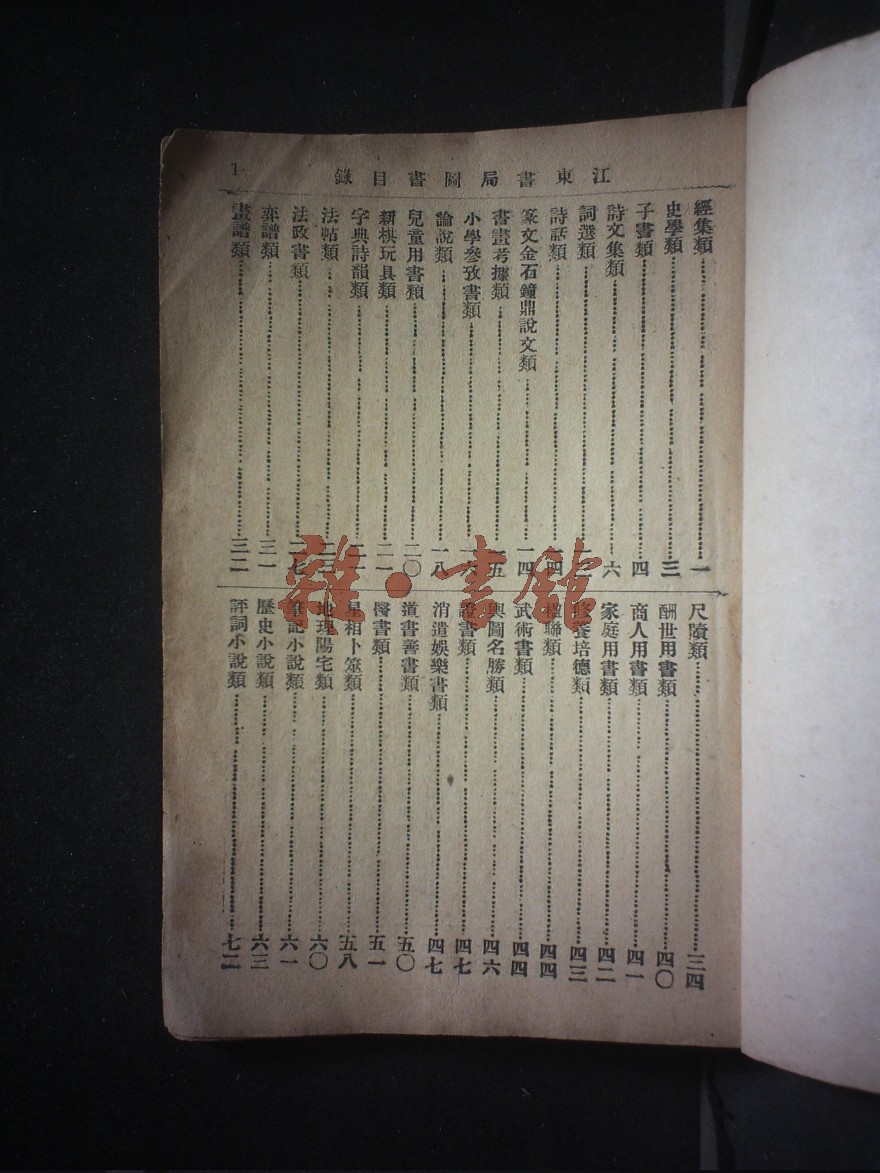 江東書局圖書目錄
1
經集類 一
史學類 三
子書類 四
詩文集類 六
詞選類
詩話類
篆文金石鐘鼎說文類 一四
書畫考據類 一五
小學參攷書類 一六
論說類 一八
兒童用書類 二〇
新棋玩具類 二一
字典詩韻類
法帖類
法政書類
弈譜類 三一
畫譜類 三二
尺牘類 三四
酬世用書類 四〇
商人用書類 四一
家庭用書類 四二
修養培德類 四三
楹聯類 四四
武術書類 四四
輿圖名勝類 四六
證書類 四七
消遣娛樂書類 四七
道書善書類 五〇
醫書類 五一
星相卜筮類 五八
地理陽宅類 六〇
筆記小說類 六一
歷史小說類 六三
評詞小說類 七二
雜·書館